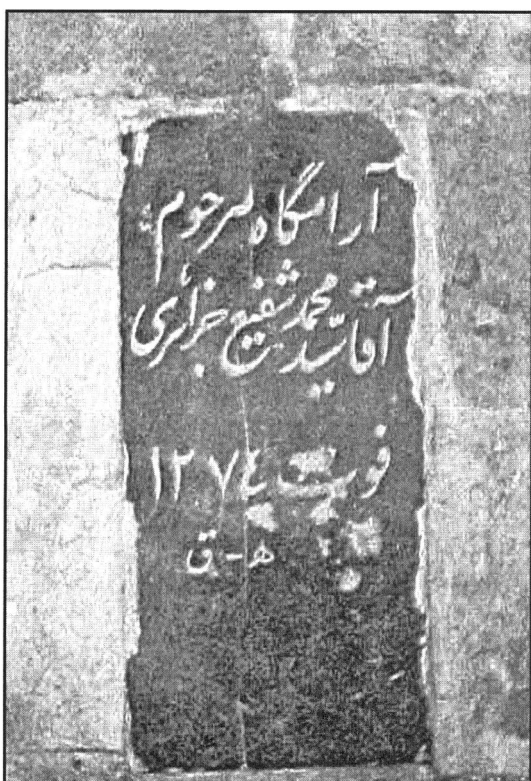 آرامگاه مرحوم
آقا سید محمد شفیع جزائری
فوت ۱۲۷۴
ه-ق